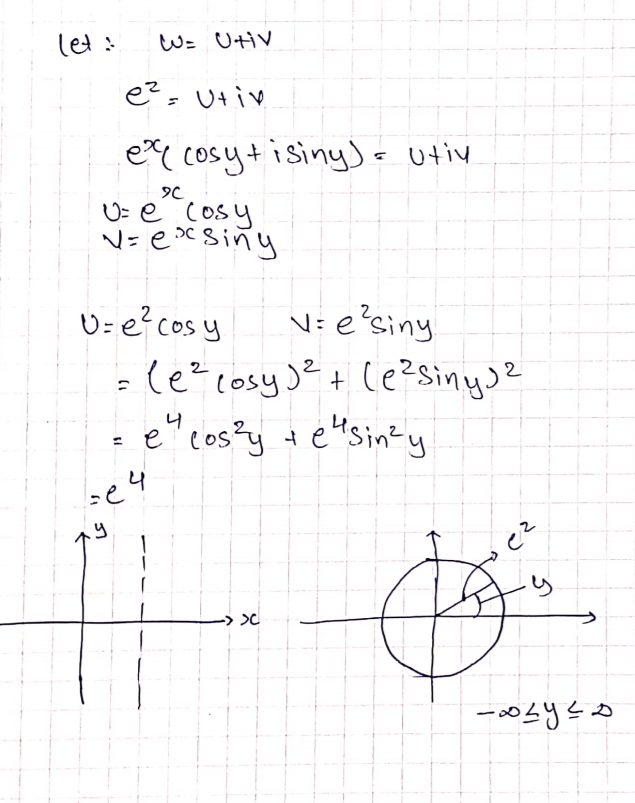 let : w = U+iv
e^z = U+iv
e^x( cosy + i siny) = u+iv
U= e^x cosy
V= e^x siny
U= e² cos y V= e² siny
= (e² cosy)² + (e² siny)²
= e⁴ cos²y + e⁴ sin²y
= e⁴
y
e²
y
x
-∞ ≤ y ≤ ∞